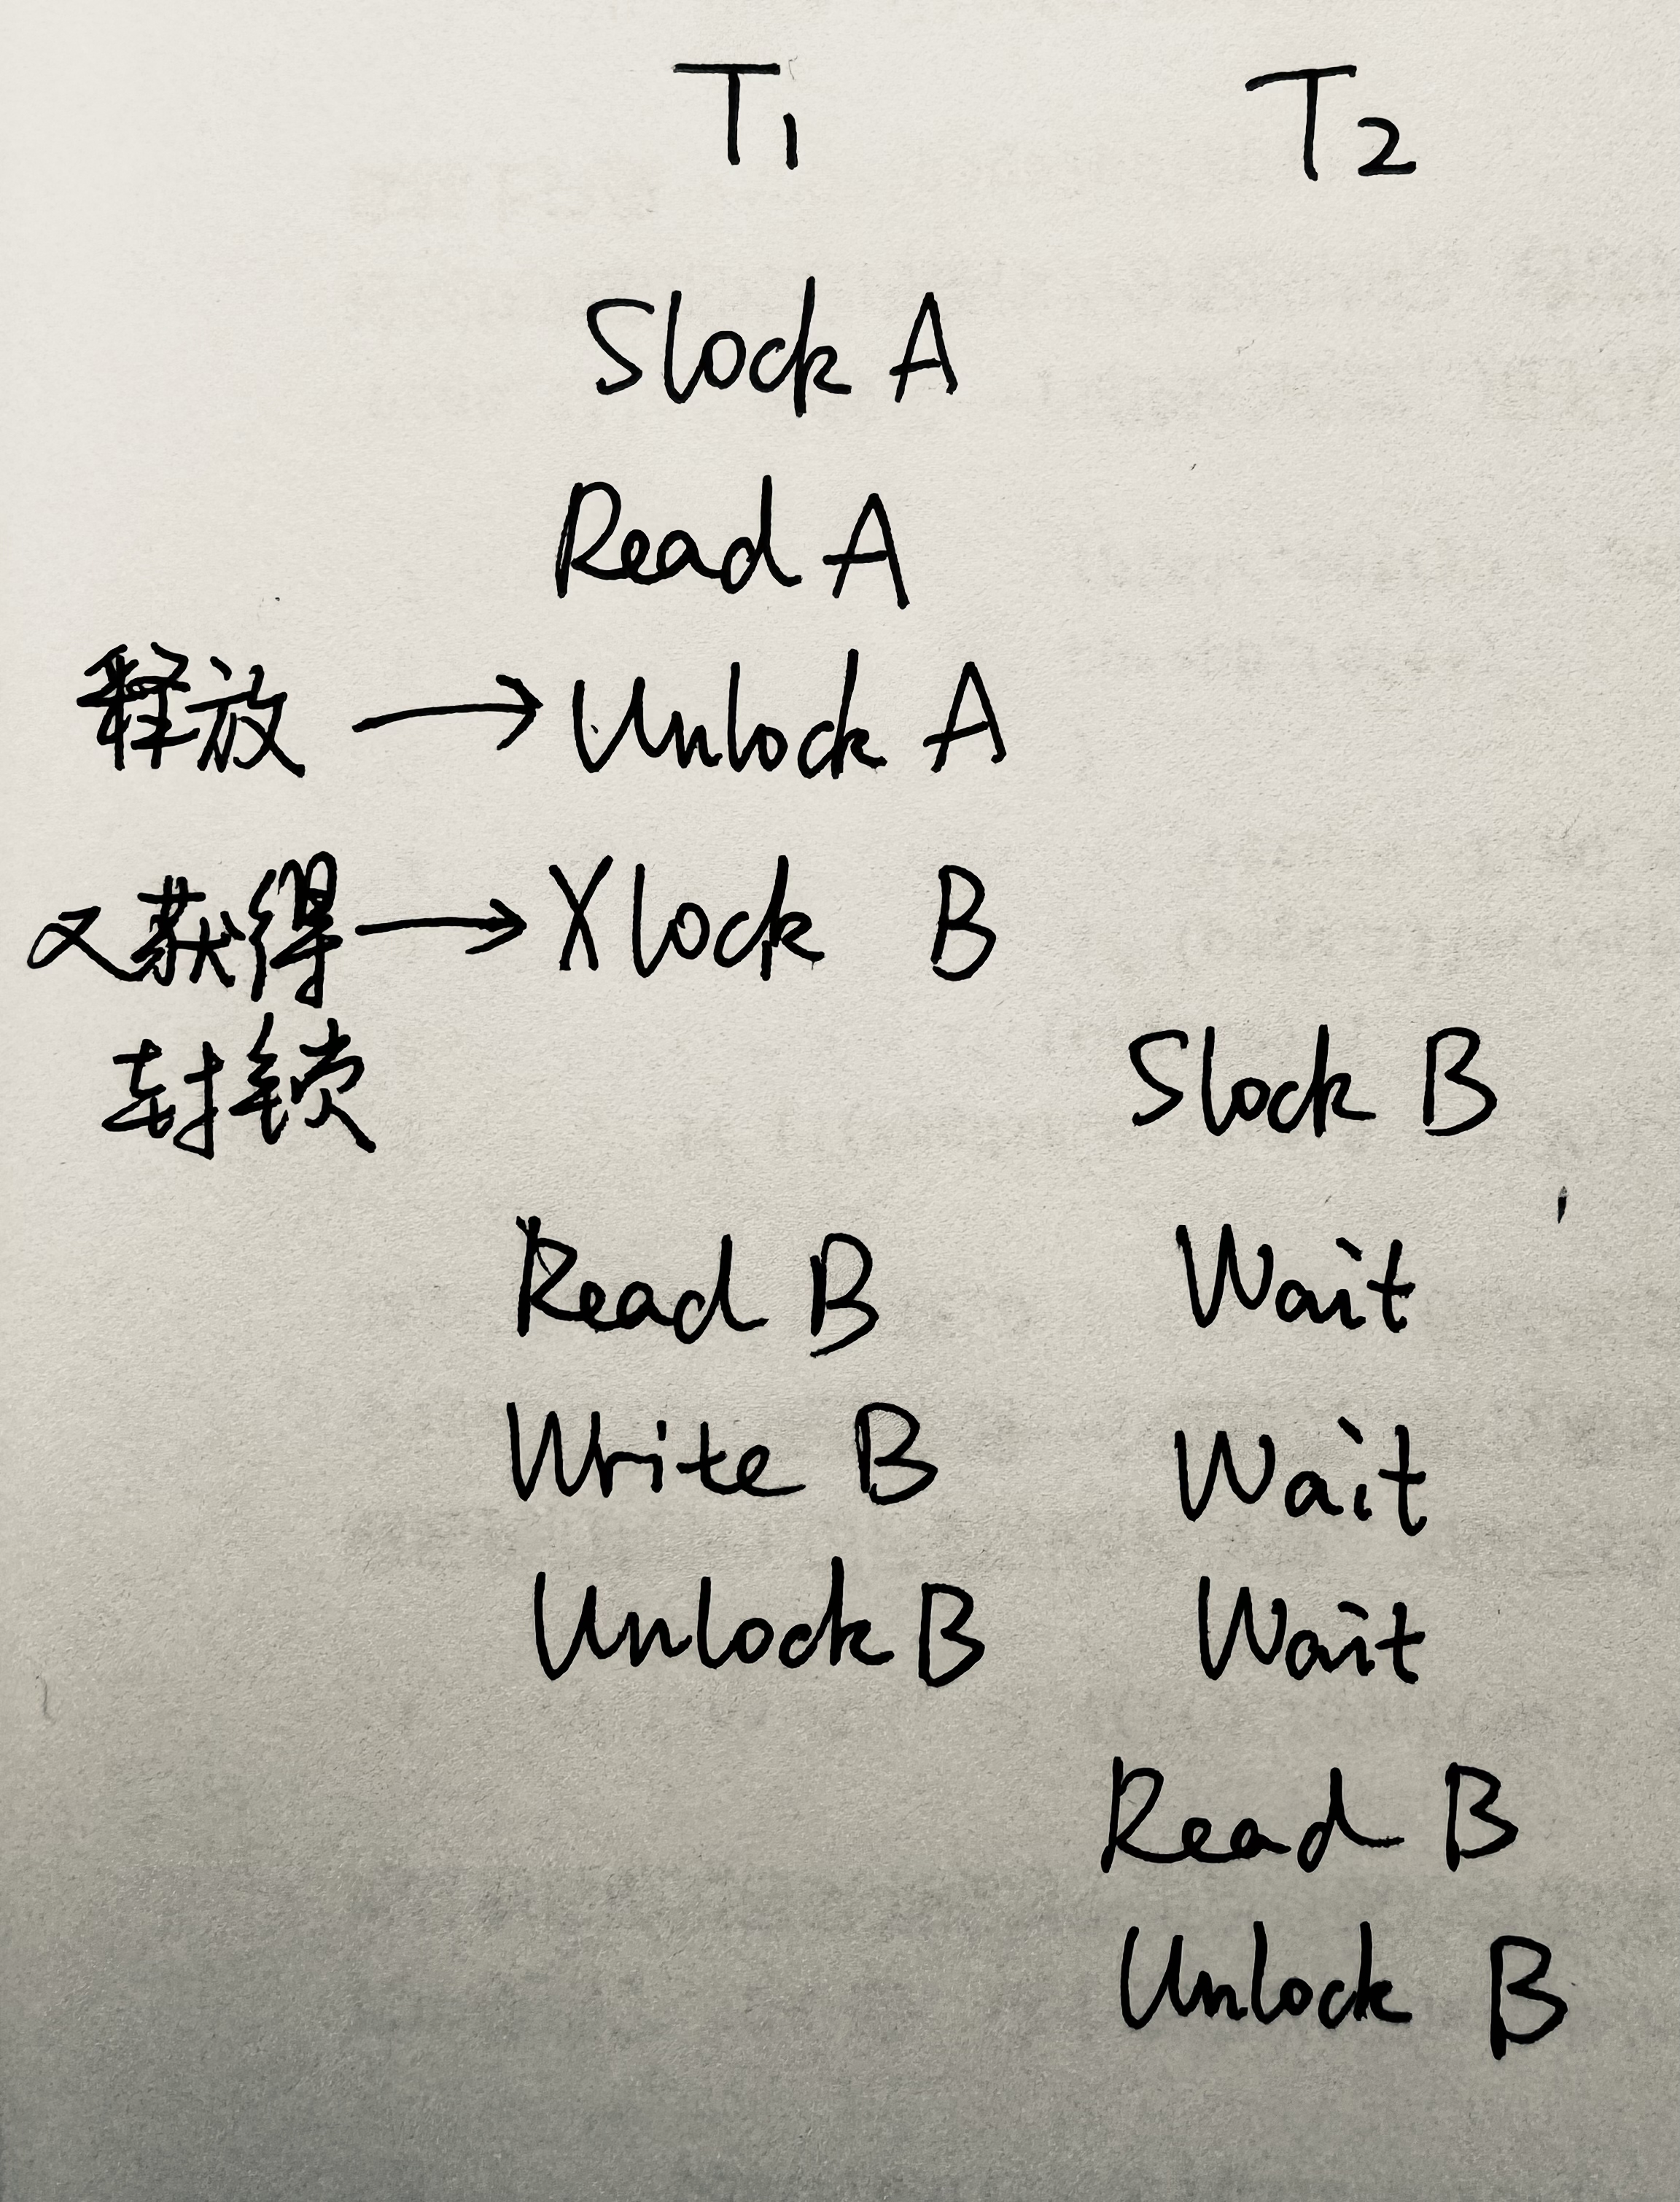 T1 T2
Slock A
Read A
释放 → Unlock A
又获得 → Xlock B
封锁 Slock B
Read B Wait
Write B Wait
Unlock B Wait
Read B
Unlock B